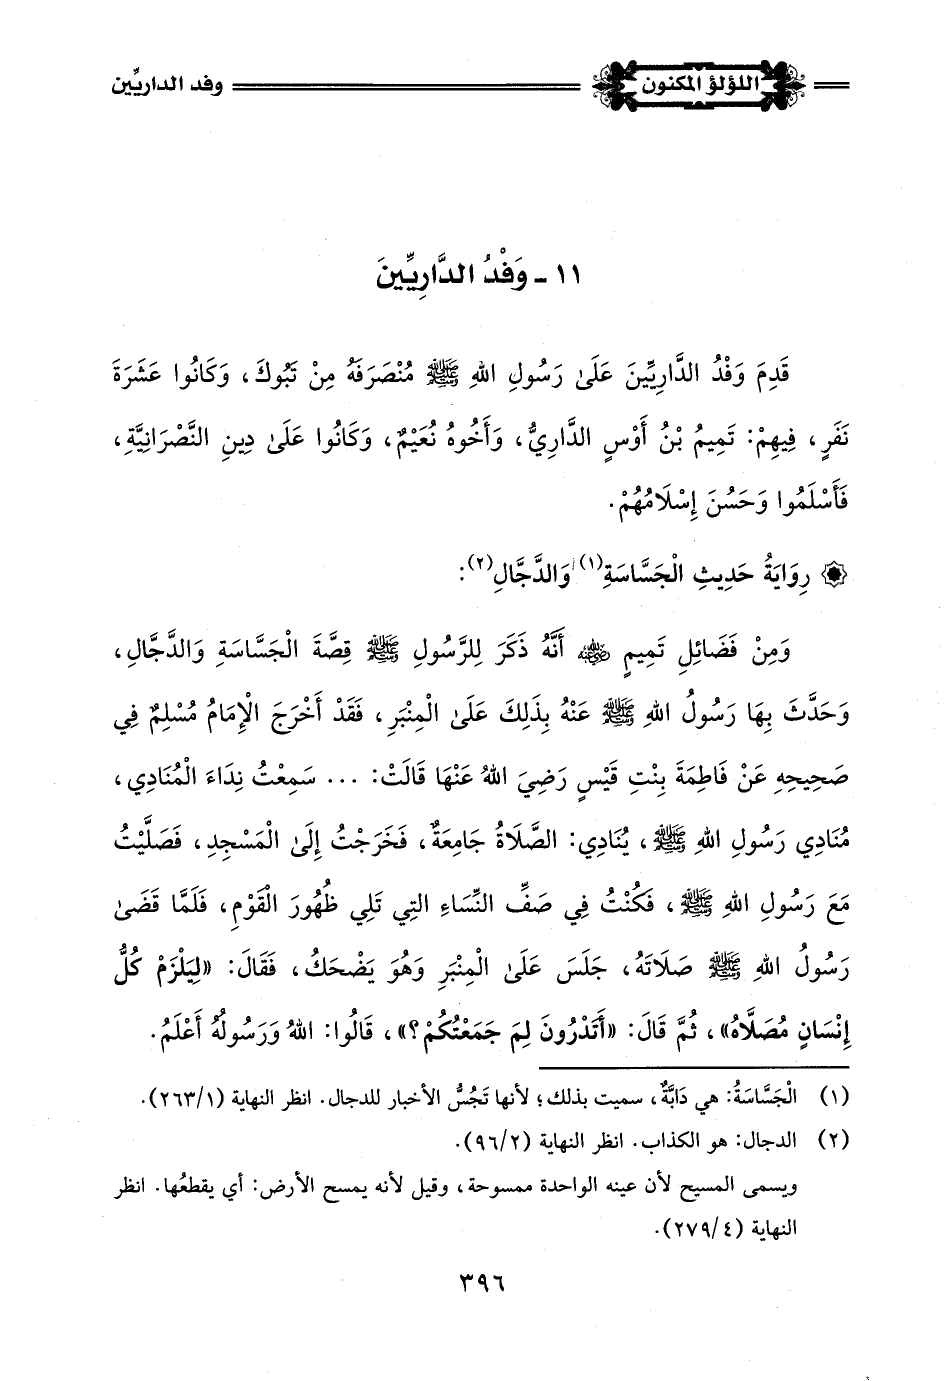 اللؤلؤ المكنون
وفد الداريِّين
١١ - وَفْدُ الدَّارِيِّينَ
قَدِمَ وَفْدُ الدَّارِيِّينَ عَلَىٰ رَسُولِ اللهِ ﷺ مُنْصَرَفَهُ مِنْ تَبُوكَ، وَكَانُوا عَشَرَةَ
نَفَرٍ، فِيهِمْ: تَمِيمُ بْنُ أَوْسٍ الدَّارِيُّ، وَأَخُوهُ نُعَيْمٌ، وَكَانُوا عَلَىٰ دِينِ النَّصْرَانِيَّةِ،
فَأَسْلَمُوا وَحَسُنَ إِسْلَامُهُمْ.
۞ رِوَايَةُ حَدِيثِ الْجَسَّاسَةِ(١) وَالدَّجَّالِ(٢):
وَمِنْ فَضَائِلِ تَمِيمٍ رضي الله عنه أَنَّهُ ذَكَرَ لِلرَّسُولِ ﷺ قِصَّةَ الْجَسَّاسَةِ وَالدَّجَّالِ،
وَحَدَّثَ بِهَا رَسُولُ اللهِ ﷺ عَنْهُ بِذَلِكَ عَلَىٰ الْمِنْبَرِ، فَقَدْ أَخْرَجَ الْإِمَامُ مُسْلِمٌ فِي
صَحِيحِهِ عَنْ فَاطِمَةَ بِنْتِ قَيْسٍ رَضِيَ اللهُ عَنْهَا قَالَتْ: ... سَمِعْتُ نِدَاءَ الْمُنَادِي،
مُنَادِي رَسُولِ اللهِ ﷺ، يُنَادِي: الصَّلَاةُ جَامِعَةٌ، فَخَرَجْتُ إِلَىٰ الْمَسْجِدِ، فَصَلَّيْتُ
مَعَ رَسُولِ اللهِ ﷺ، فَكُنْتُ فِي صَفِّ النِّسَاءِ التِي تَلِي ظُهُورَ الْقَوْمِ، فَلَمَّا قَضَىٰ
رَسُولُ اللهِ ﷺ صَلَاتَهُ، جَلَسَ عَلَىٰ الْمِنْبَرِ وَهُوَ يَضْحَكُ، فَقَالَ: «لِيَلْزَمْ كُلُّ
إِنْسَانٍ مُصَلَّاهُ»، ثُمَّ قَالَ: «أَتَدْرُونَ لِمَ جَمَعْتُكُمْ؟»، قَالُوا: اللهُ وَرَسُولُهُ أَعْلَمُ.
(١) الْجَسَّاسَةُ: هي دَابَّةٌ، سميت بذلك؛ لأنها تَجُسُّ الأخبار للدجال. انظر النهاية (٢٦٣/١).
(٢) الدجال: هو الكذاب. انظر النهاية (٩٦/٢).
ويسمى المسيح لأن عينه الواحدة ممسوحة، وقيل لأنه يمسح الأرض: أي يقطعُها. انظر
النهاية (٢٧٩/٤).
٣٩٦